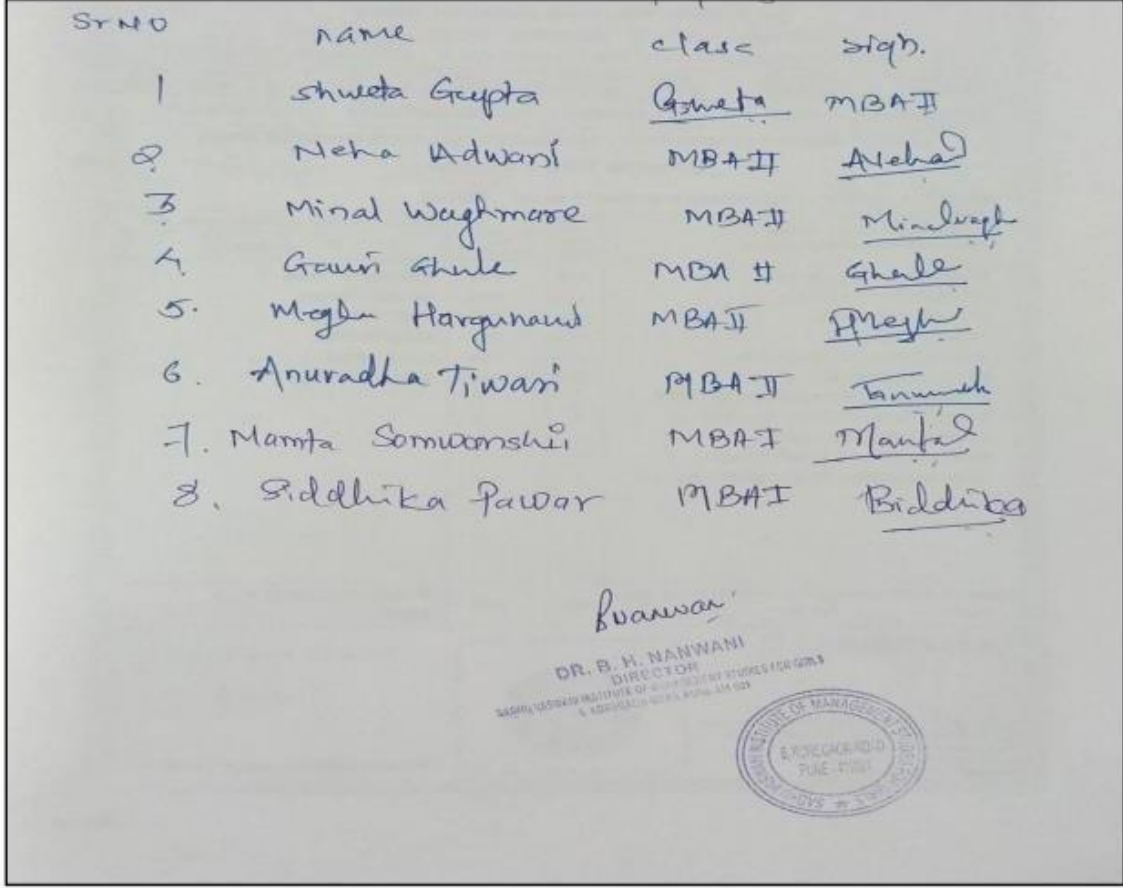 Sr NO name class sign.
1 Shweta Gupta Gshweta MBA II
2 Neha Adwani MBA II Neha
3 Minal Waghmare MBA II Minalwagh
4 Gauri Ghule MBA II Ghule
5. Megha Hargunani MBA II Megh
6. Anuradha Tiwari MBA II
7. Mamta Somwanshi MBA I Mamta
8. Siddhika Pawar MBA I Siddhika
DR. B. H. NANWANI
DIRECTOR
SADHU VASWANI INSTITUTE OF MANAGEMENT STUDIES FOR GIRLS
SADHU VASWANI INSTITUTE OF MANAGEMENT STUDIES FOR GIRLS